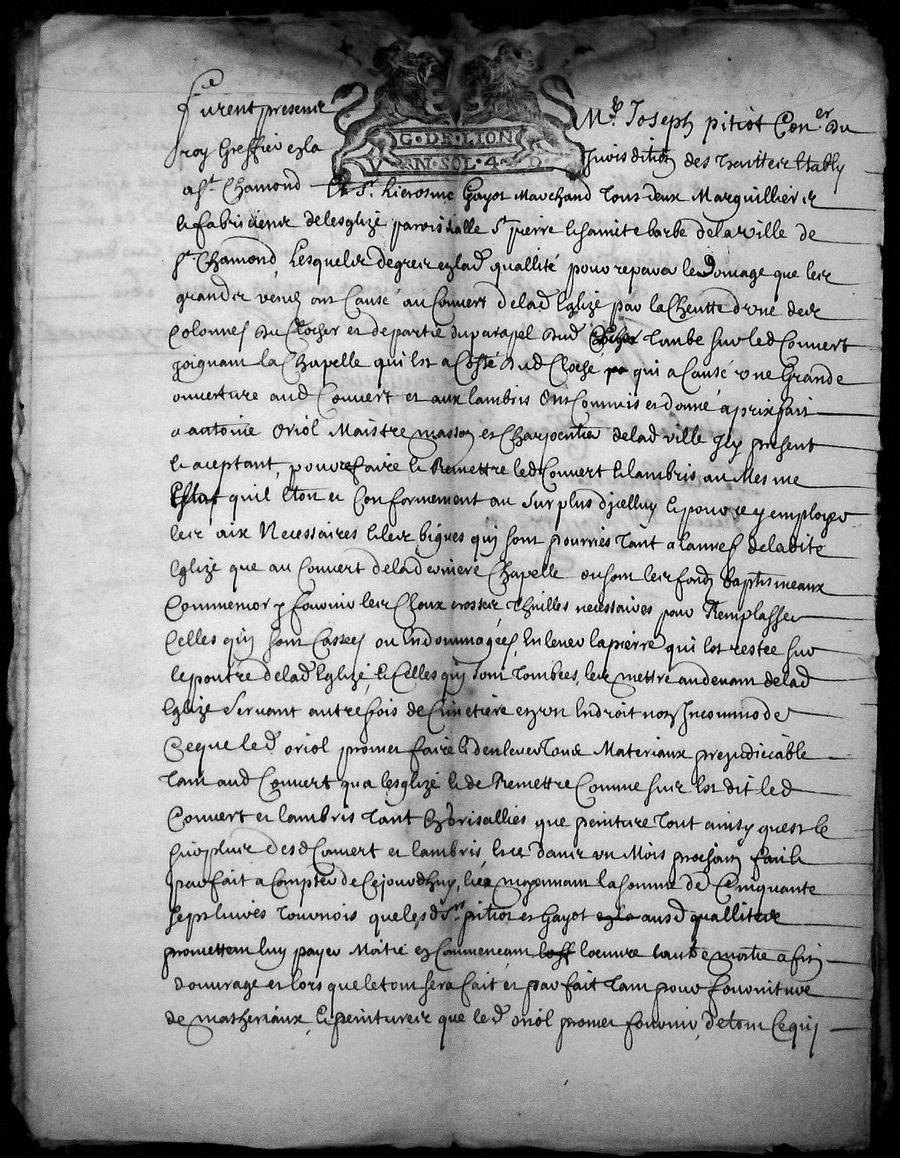 Furent presents Me Joseph pitiot Coner du
G·DE·LION
VN·SOL·4·D·
roy Greffier en la Jurisdition des traittes Establÿ
a St Chamond Et Sr hierosme Gayot Marchand tous deux Marguilliers
et fabriciens de lesglize parroissialle St pierre et sainte barbe de la ville de
St Chamond, Lesquels de gré en lad quallité pour reparer le Domage que les
grands vents ont Causé au Couvert de lad Eglize par la Cheutte d'une des
Colonnes du Clocher et de partie du parapel dud tombé sur led Couvert
joignant la Chapelle qui Est a Costé dud Cloche qui a Causé une Grande
ouverture aud Couvert et aux lambris Ont Commis et donné a prix fait
a antoine Oriol Maistre masson et Charpentier de lad ville Icy present
et aceptant, pour refaire et Remettre led Couvert et lambris au Mesme
Estat quil Etoit et Conformement au Surplus d'icelluy et pour ce y employer
les aix Necessaires et les bigues quy sont pourries tant a de ladite
Eglize que au Couvert de lad derniere Chapelle ou sont les fonds baptismeaux
Comme fournir les Cloux Thuilles necessaires pour Remplasser
Celles quy sont Cassees ou Indommagées, Enlever la pierre qui Est restée sur
le poutre de lad Eglize, et Celles quy sont tombées, les mettre au devant de lad
Eglize Servant autrefois de Cimetiere en un Endroit non Incommode
Ce que led oriol promet faire et d'enlever tous Materiaux prejudiciable
tant aud Couvert qua lesglize et de Remettre Comme sus Est dit led
Couvert et lambris tant que peinture tout ainsy quest le
surplus desd Couvert et lambris, Et ce dans un Mois prochain fait et
parfait a Compter de Cejourdhuy, moyennant la somme de Cinquante
sept livres tournois que lesd Srs pitiot et Gayot ausd quallittes
promettent luy payer Moitié en Commencant loeuvre lautre moitie a fin
d'ouvrage et lors que le tout sera fait et parfait tant pour fourniture
de matheriaux, et peintures que led oriol promet fournir, de tout Ce quj